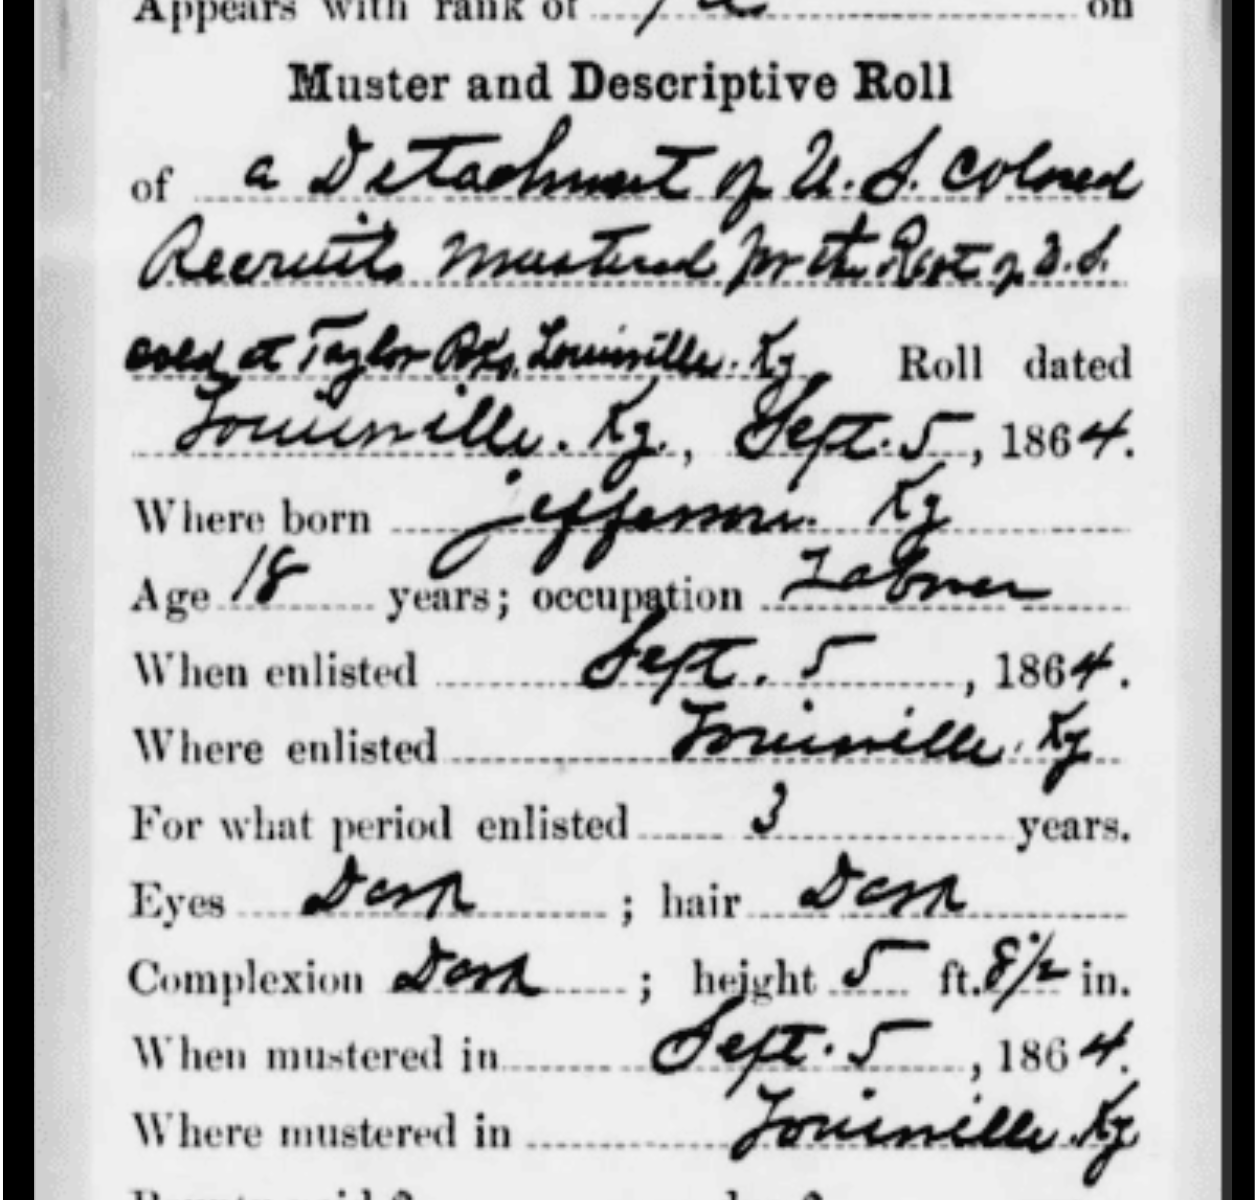 Appears with rank of on
Muster and Descriptive Roll
of a Detachment of U. S. Colored
Recruits mustered for the of U.S.
cold at Taylor Bks, Louisville. Ky Roll dated
Louisville. Ky., Sept. 5, 1864.
Where born jefferson. Ky
Age 18 years; occupation Laborer
When enlisted Sept. 5, 1864.
Where enlisted Louisville. Ky
For what period enlisted 3 years.
Eyes Dark ; hair Dark
Complexion Dark ; height 5 ft. 8 1/2 in.
When mustered in Sept. 5, 1864.
Where mustered in Louisville. Ky